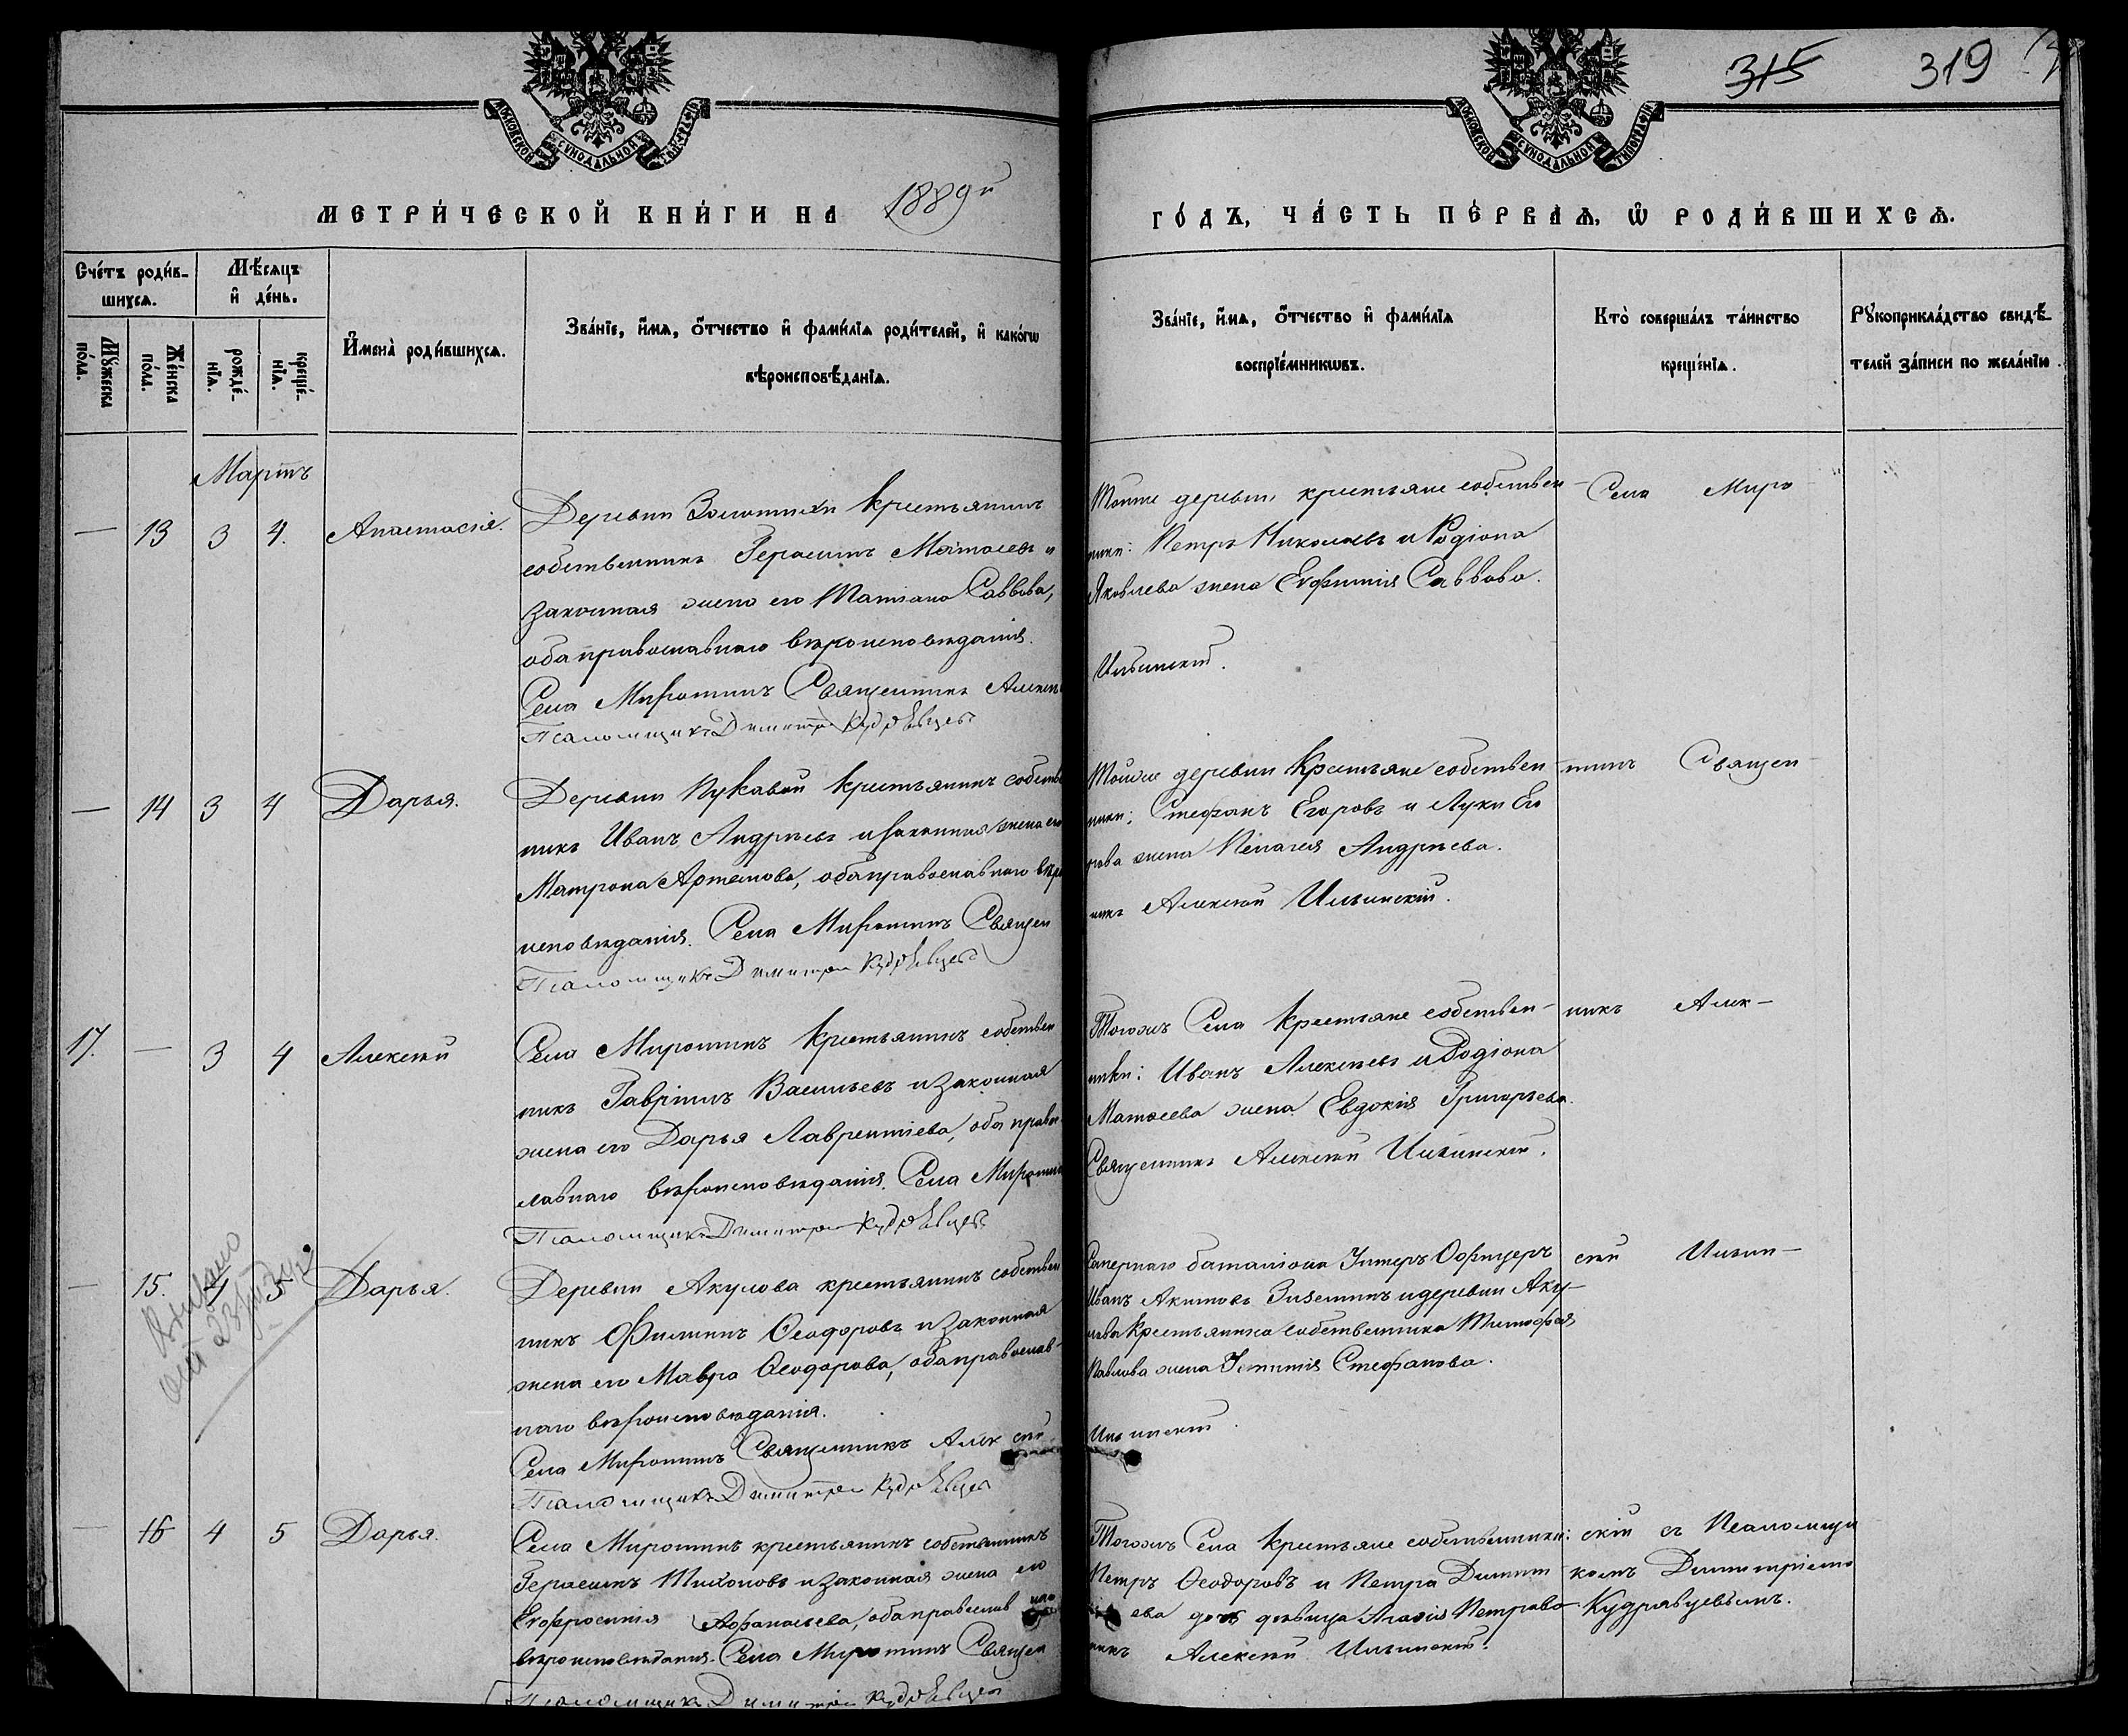 315 319
МОСКОВСКОЙ СУНОДАЛЬНОЙ ТИПОГРАФІИ
МОСКОВСКОЙ СУНОДАЛЬНОЙ ТИПОГРАФІИ
МЕТРИ́ЧЕСКОЙ КНИ́ГИ НА 1889й
ГО́ДЪ, ЧА́СТЬ ПЕ́РВАѦ, Ѡ҆ РОДИ́ВШИХСѦ.
Сче́тъ роди́в-
шихсѧ.
Мꙋ́жеска
по́ла.
Же́нска
по́ла.
Мѣ́сѧцъ
и҆ де́нь.
рожде́-
нїѧ.
креще́-
нїѧ.
И҆мена̀ роди́вшихсѧ.
Зва́нїе, и҆́мѧ, ѻ҆́тчество и҆ фами́лїѧ роди́телей, и҆ како́гѡ
вѣроисповѣ́данїѧ.
Зва́нїе, и҆́мѧ, ѻ҆́тчество и҆ фами́лїѧ
воспрїе́мникѡвъ.
Кто̀ соверша́лъ та́инство
креще́нїѧ.
Рꙋкоприкла́дство свидѣ́-
телей за́писи по жела́нїю.
Мартъ
— 13 3 4. Анастасія.
Деревни Золотихи крестьянинъ
собственникъ Герасимъ Матѳеевъ и
законная жена его Татіана Саввова,
оба православнаго вѣроисповѣданія.
Села Миротинъ Священникъ Алексѣй
Псаломщикъ Димитрій Кудрявцевъ
Тойже деревни крестьяне собствен-
ники: Петръ Николаевъ и Родіона
Яковлева жена Евфимія Саввова.
Ильинскій.
Села Миро
— 14 3 4 Дарья.
Деревни Пукавой крестьянинъ собствен
никъ Иванъ Андреевъ и законная жена его
Матрона Артемова, оба православнаго вѣро
исповѣданія. Села Миротинъ Священ
Псаломщикъ Димитрій Кудрявцевъ
Тойже деревни крестьяне собствен-
ники: Стефанъ Егоровъ и Луки Его
рова жена Пелагея Андреева.
никъ Алексѣй Ильинскій.
тинъ Священ
17. — 3 4 Алексѣй
Села Миротинъ крестьянинъ собствен
никъ Гавріилъ Васильевъ и законная
жена его Дарья Лаврентіева, оба правос
лавнаго вѣроисповѣданія. Села Миротинъ
Псаломщикъ Димитрій Кудрявцевъ
Тогожъ Села крестьяне собствен-
ники: Иванъ Алексѣевъ и Родіона
Матѳеева жена Евдокія Григорьева.
Священникъ Алексѣй Ильинскій.
никъ Алек-
— 15. 4 5 Дарья.
Деревни Акулова крестьянинъ собствен
никъ Филиппъ Ѳеодоровъ и законная
жена его Мавра Ѳеодорова, оба православ-
наго вѣроисповѣданія.
Села Миротинъ Священникъ Алексѣй
Псаломщикъ Димитрій Кудрявцевъ
Сапернаго баталіона Унтеръ Офицеръ
Иванъ Акимовъ и деревни Аку-
лова крестьянина собственника Тимофея
Павлова жена Стефанова.
Ильинскій
сѣй Ильин-
— 16 4 5 Дарья.
Села Миротинъ крестьянинъ собственникъ
Герасимъ Тихоновъ и законная жена его
Евфросинія Афанасьева, оба православнаго
вѣроисповѣданія. Села Миротинъ Священ
Псаломщикъ Димитрій Кудрявцевъ
Тогожъ Села крестьяне собственники:
Петръ Ѳеодоровъ и Петра Димит
ева дочь дѣвица Агаѳія Петрова
никъ Алексѣй Ильинскій.
скій съ Псаломщи
комъ Димитріемъ
Кудрявцевымъ.